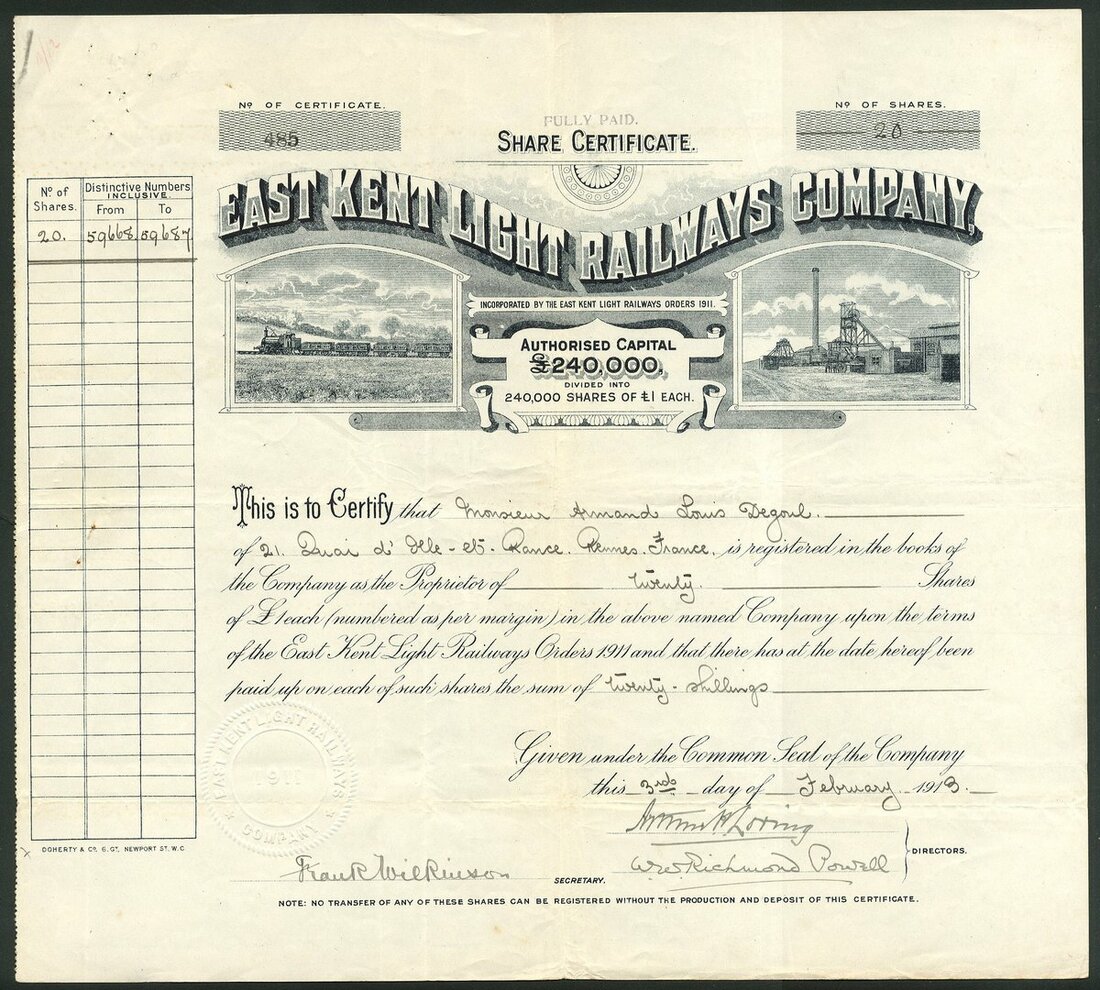 Nº OF CERTIFICATE.
485
FULLY PAID.
SHARE CERTIFICATE.
Nº OF SHARES.
20
EAST KENT LIGHT RAILWAYS COMPANY,
INCORPORATED BY THE EAST KENT LIGHT RAILWAYS ORDERS 1911.
AUTHORISED CAPITAL
£240,000,
DIVIDED INTO
240,000 SHARES OF £1 EACH.
Nº of Shares. Distinctive Numbers INCLUSIVE.
From To
20. 59668 59687
This is to Certify that Monsieur Armand Louis Degoul.
of 21. Quai d' Ille-et-Rance. Rennes. France. is registered in the books of
the Company as the Proprietor of twenty. Shares
of £1 each (numbered as per margin) in the above named Company upon the terms
of the East Kent Light Railways Orders 1911 and that there has at the date hereof been
paid up on each of such shares the sum of twenty-shillings
Given under the Common Seal of the Company
this 3rd day of February 1913.
EAST KENT LIGHT RAILWAYS
1911
COMPANY
Arthur H Loring
W. W. Richmond Powell
DIRECTORS.
Frank Wilkinson
SECRETARY.
DOHERTY & Cº 6. GT. NEWPORT ST. W.C.
NOTE: NO TRANSFER OF ANY OF THESE SHARES CAN BE REGISTERED WITHOUT THE PRODUCTION AND DEPOSIT OF THIS CERTIFICATE.